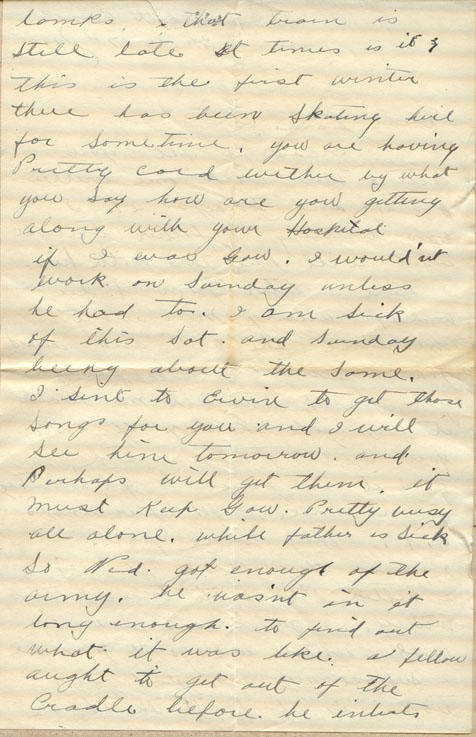 that train is
still late at times is it?
this is the first winter
there has been skating hire
for sometime. you are having
Pretty cord wether by what
you say how are you getting
along with your Hospital
if I was Gow. I wouldnt
work on Sunday unless
he had to. I am sick
of this Sat. and Sunday
being about the same.
I sent to Ewin to get those
songs for you and I will
see him tomorrow. and
Perhaps will get them. it
must Keep Gow. Pretty busy
all alone. while father is sick
So Ned. got enough of the
army. he wasnt in it
long enough. to find out
what it was like. a fellow
aught to get out of the
Cradle before he inlists